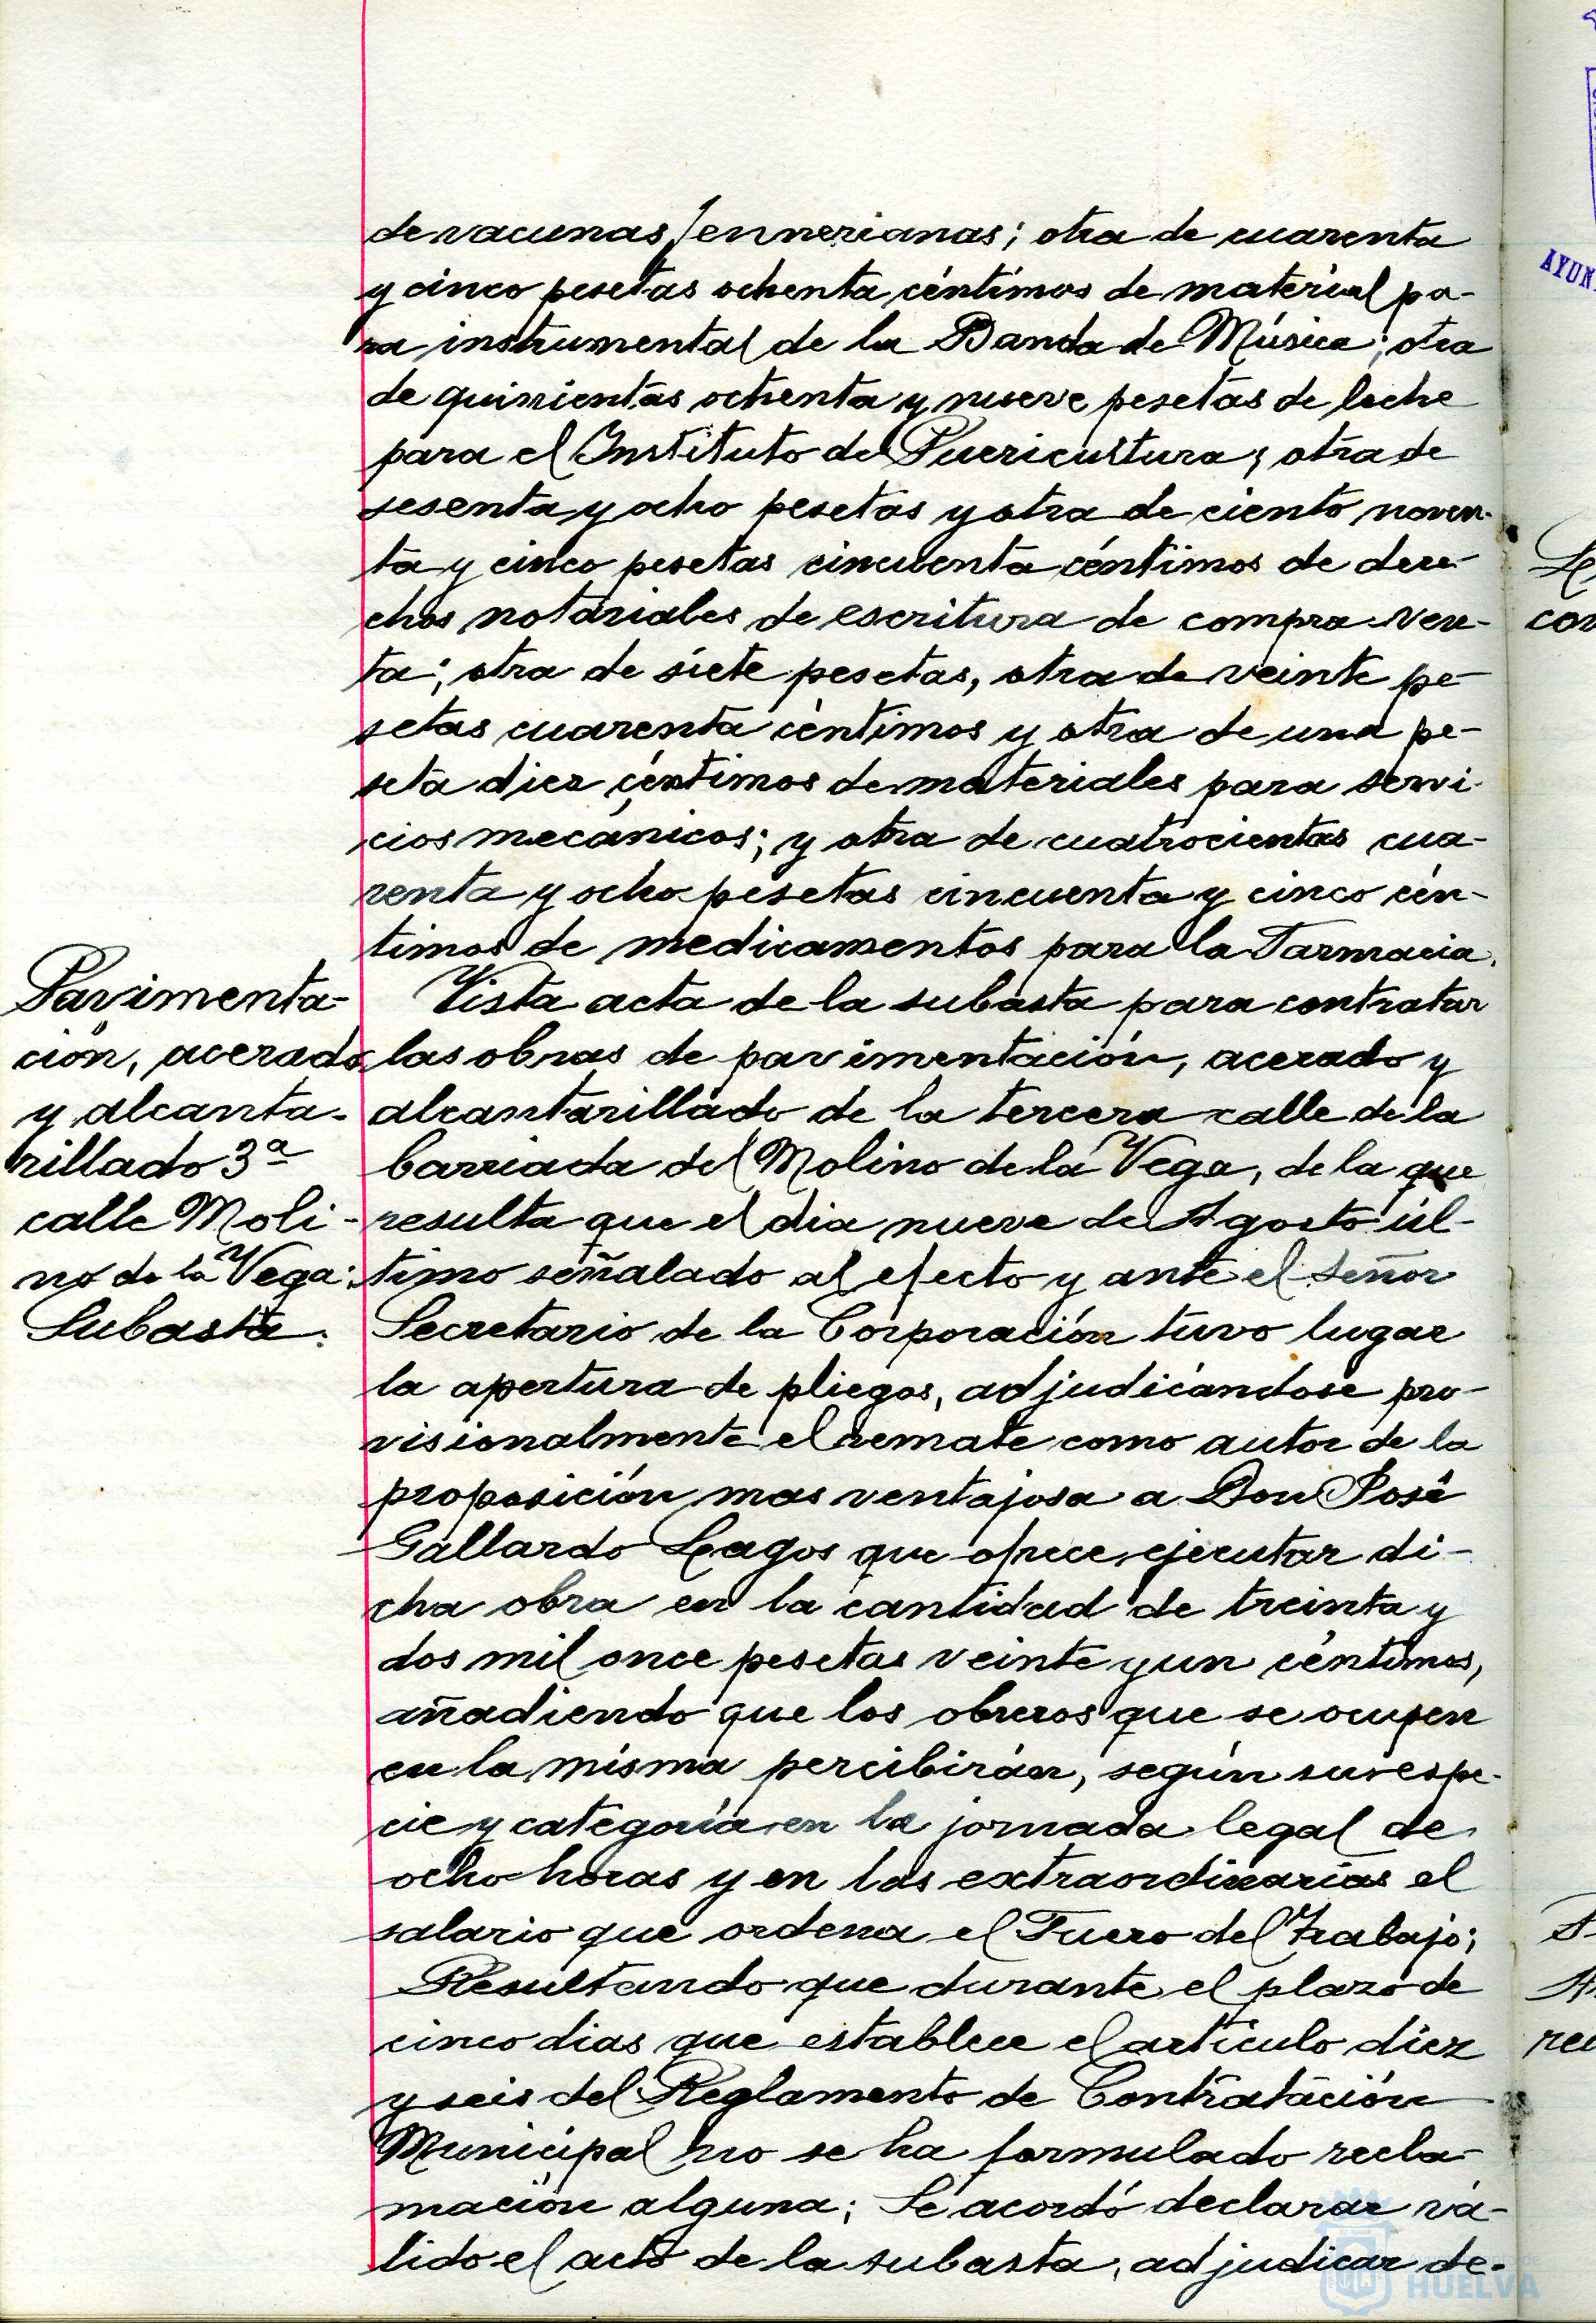 de vacunas Jennerianas; otra de cuarenta
y cinco pesetas ochenta céntimos de material pa-
ra instrumental de la Banda de Música; otra
de quinientas ochenta y nueve pesetas de leche
para el Instituto de Puericultura; otra de
sesenta y ocho pesetas y otra de ciento noven-
ta y cinco pesetas cincuenta céntimos de dere-
chos notariales de escritura de compra-ven-
ta; otra de siete pesetas, otra de veinte pe-
setas cuarenta céntimos y otra de una pe-
seta diez céntimos de materiales para servi-
cios mecánicos; y otra de cuatrocientas cua-
renta y ocho pesetas cincuenta y cinco cén-
timos de medicamentos para la Farmacia.
Pavimenta-
ción, acerado
y alcanta-
rillado 3ª
calle Moli-
no de la Vega:
Subasta.
Vista acta de la subasta para contratar
las obras de pavimentación, acerado y
alcantarillado de la tercera calle de la
barriada del Molino de la Vega, de la que
resulta que el dia nueve de Agosto úl-
timo señalado al efecto y ante el Señor
Secretario de la Corporación tuvo lugar
la apertura de pliegos, adjudicándose pro-
visionalmente el remate como autor de la
proposición mas ventajosa a Don José
Gallardo Lagos que ofrece ejecutar di-
cha obra en la cantidad de treinta y
dos mil once pesetas veinte y un céntimos,
añadiendo que los obreros que se ocupen
en la misma percibirán, según su espe-
cie y categoría en la jornada legal de
ocho horas y en las extraordinarias el
salario que ordena el Fuero del Trabajo;
Resultando que durante el plazo de
cinco dias que establece el artículo diez
y seis del Reglamento de Contratación
Municipal no se ha formulado recla-
mación alguna; Se acordó declarar vá-
lido el acto de la subasta, adjudicar de-
AYUN
cor
HUELVA